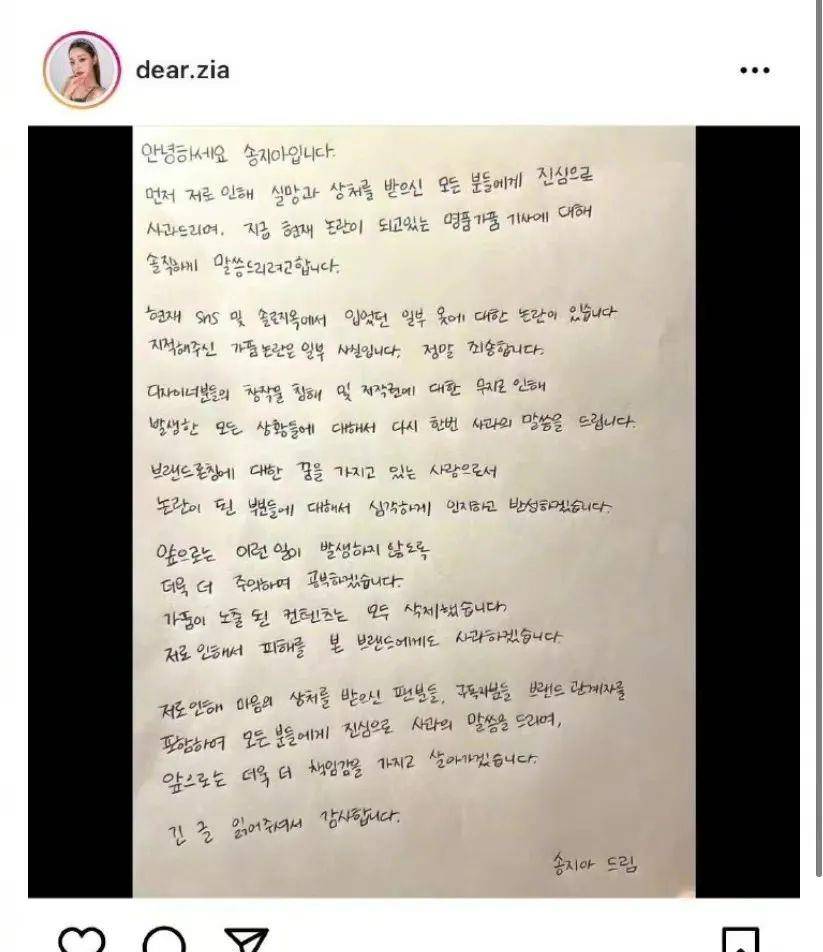 dear.zia
안녕하세요 송지아입니다.
먼저 저로 인해 실망과 상처를 받으신 모든 분들에게 진심으로
사과드리며, 지금 현재 논란이 되고있는 명품가품 기사에 대해
솔직하게 말씀드리려고합니다.
현재 SNS 및 솔로지옥에서 입었던 일부 옷에 대한 논란이 있습니다
지적해주신 가품논란은 일부 사실입니다. 정말 죄송합니다.
디자이너분들의 창작물 침해 및 저작권에 대한 무지로 인해
발생한 모든 상황들에 대해서 다시 한번 사과의 말씀을 드립니다.
브랜드론칭에 대한 꿈을 가지고 있는 사람으로서
논란이 된 부분들에 대해서 심각하게 인지하고 반성하겠습니다.
앞으로는 이런 일이 발생하지 않도록
더욱 더 주의하며 공부하겠습니다.
가품이 노출 된 컨텐츠는 모두 삭제했습니다,
저로 인해서 피해를 본 브랜드에게도 사과하겠습니다.
저로인해 마음의 상처를 받으신 팬분들, 구독자분들 브랜드 관계자를
포함하여 모든 분들에게 진심으로 사과의 말씀을 드리며,
앞으로는 더욱 더 책임감을 가지고 살아가겠습니다.
긴 글 읽어주셔서 감사합니다.
송지아 드림